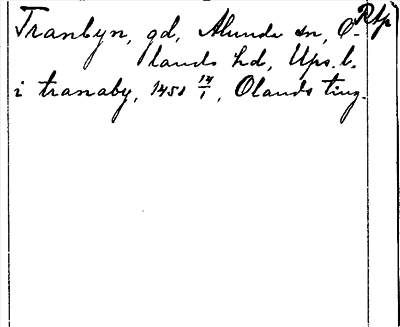 Tranbyn, gd, Alunda sn, O- Rtp
lands hd, Ups. l.
i tranaby, 1451 14/1, Olands ting.